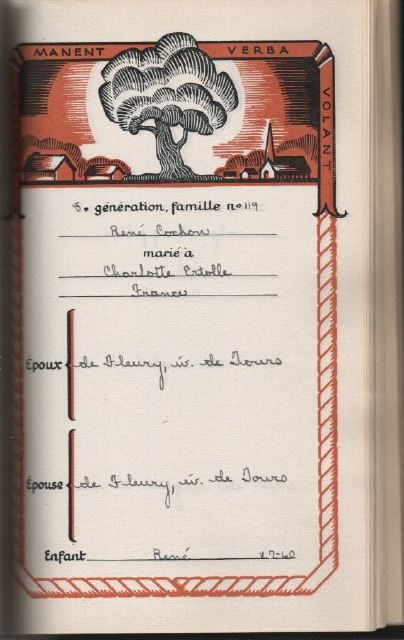 MANENT VERBA VOLANT
8. génération, famille nº 119
René Cochon
marié à
Charlotte Ertolle
France
Époux de Fleury, év. de Tours
Épouse de Fleury, év. de Tours
Enfant René v. 7-60